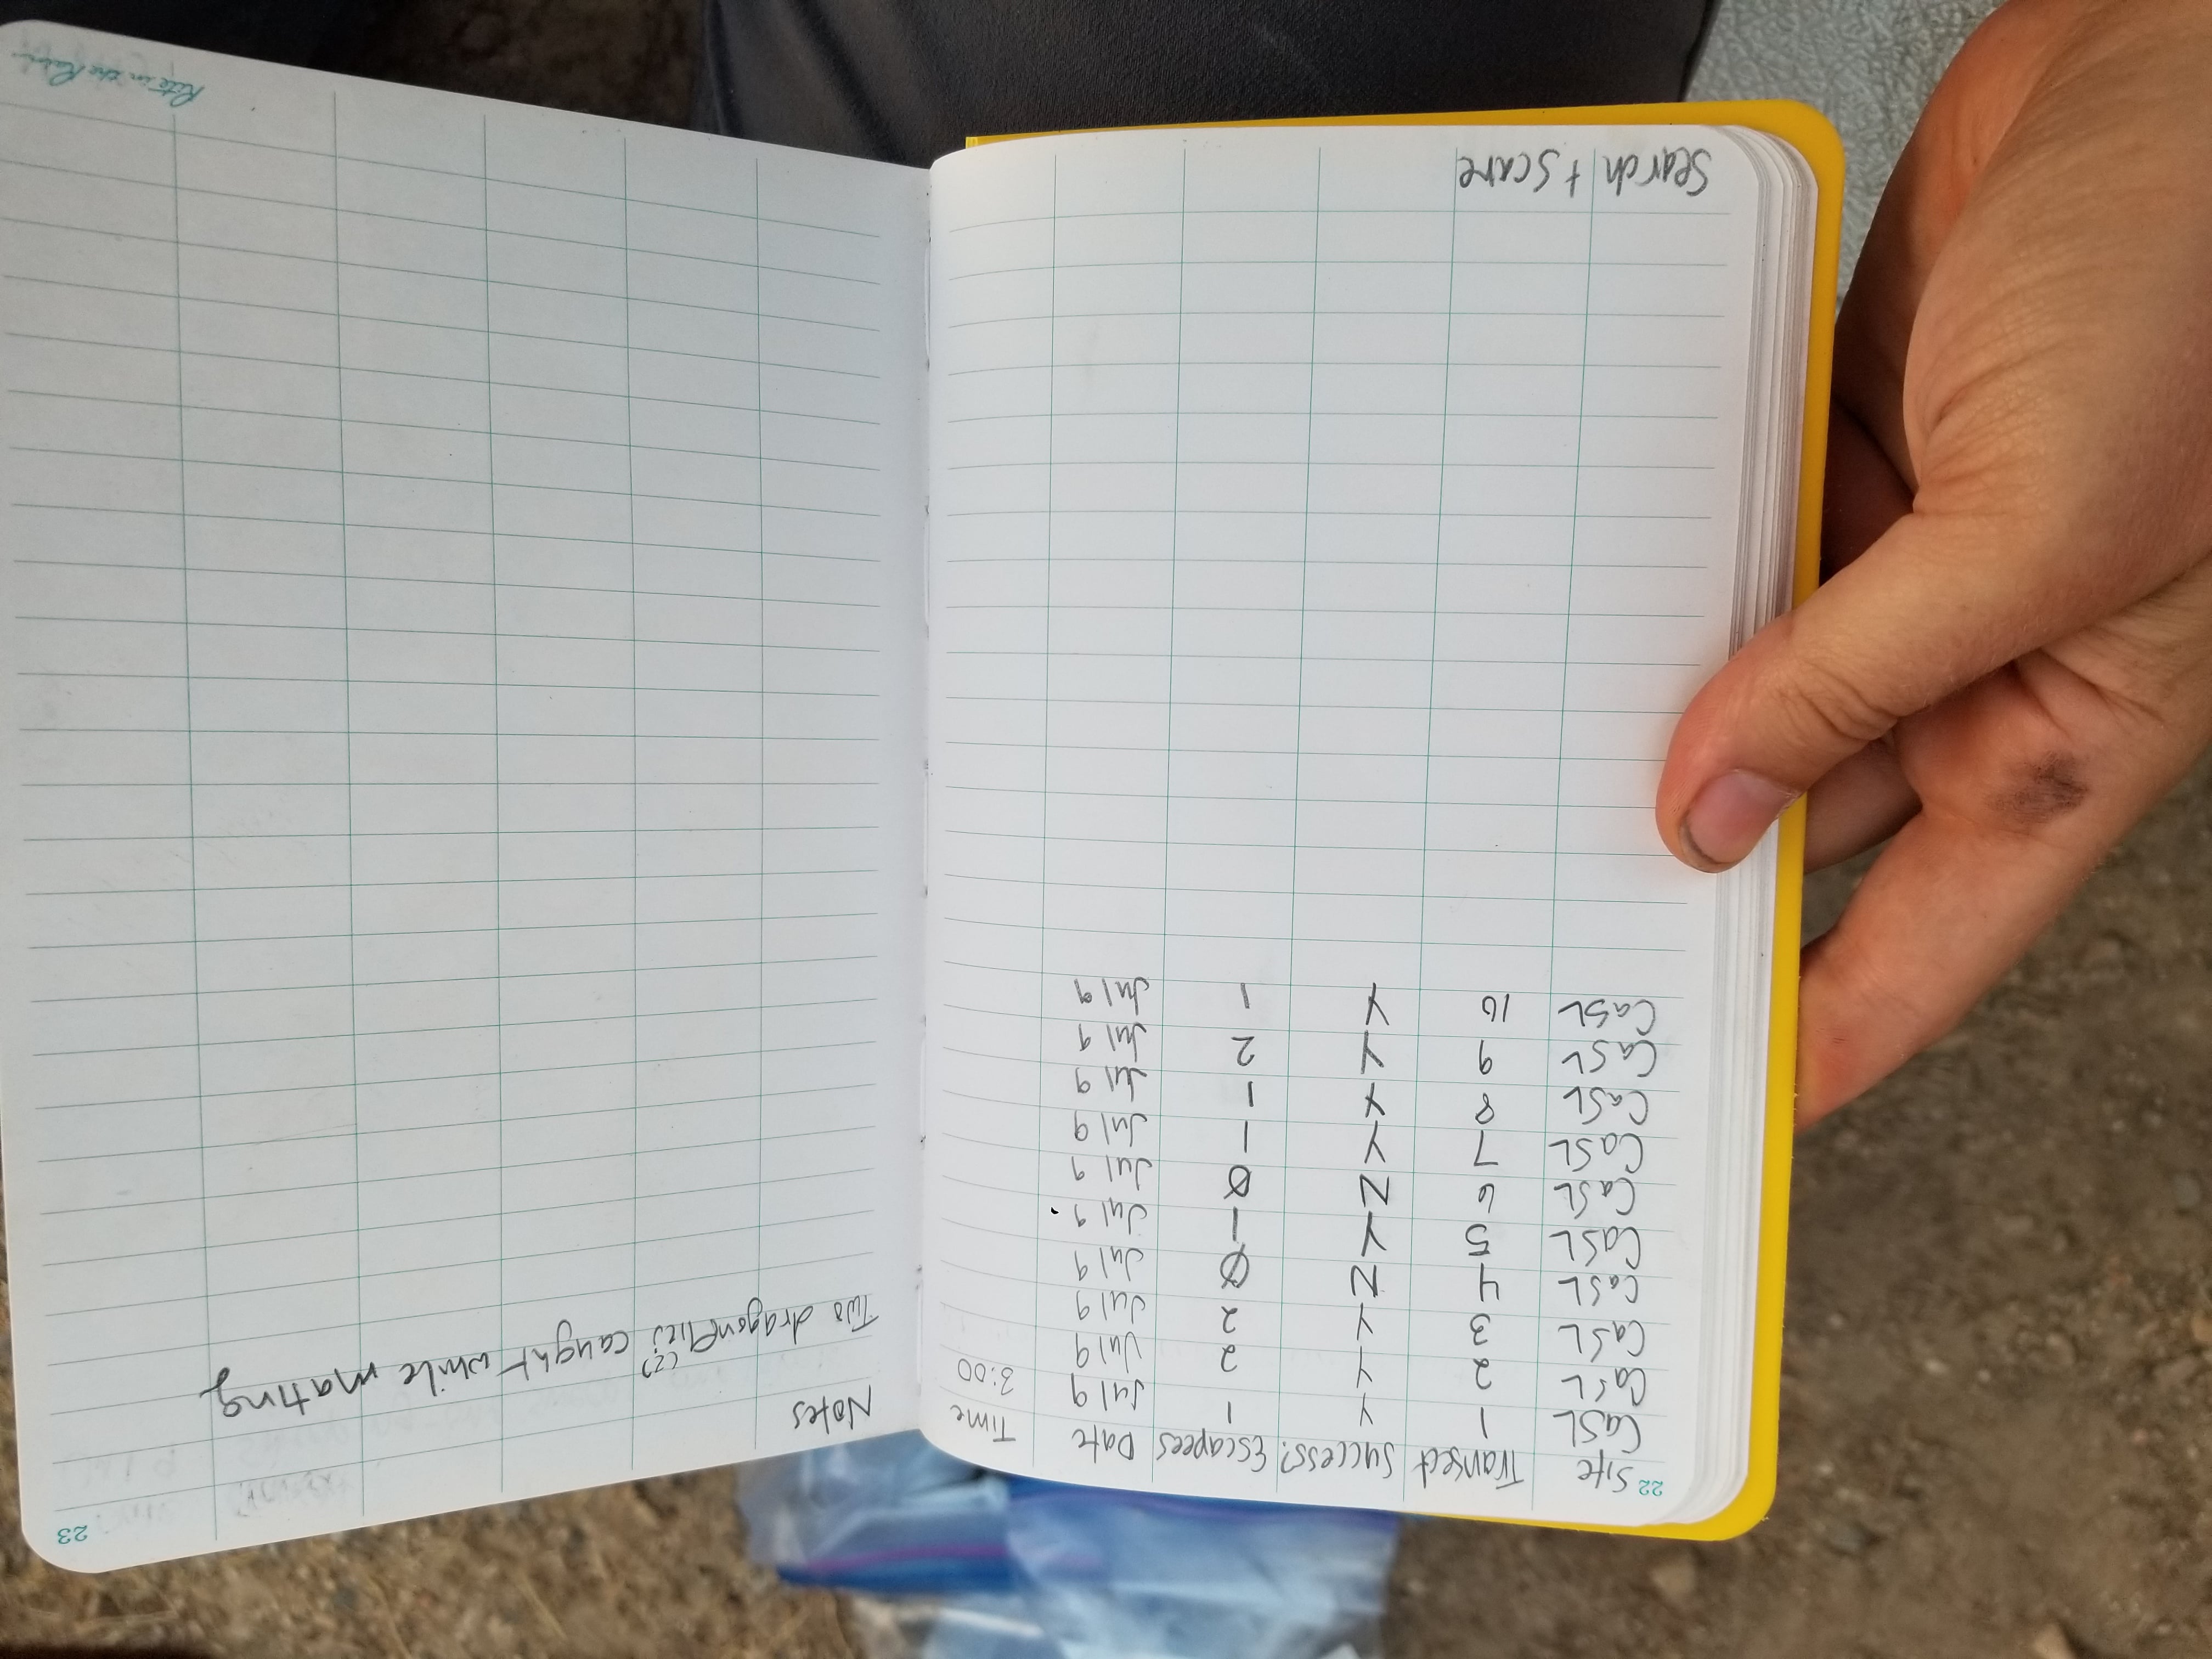 22
Site Transect Success? Escapees Date Time
CaSL 1 Y 1 Jul 9 3:00
CaSL 2 Y 2 Jul 9
CaSL 3 Y 2 Jul 9
CaSL 4 N Ø Jul 9
CaSL 5 Y 1 Jul 9
CaSL 6 N Ø Jul 9
CaSL 7 Y 1 Jul 9
CaSL 8 Y 1 Jul 9
CaSL 9 Y 2 Jul 9
CaSL 10 Y 1 Jul 9
Search + Scare
23
Notes
(2)
Two dragonflies caught while mating
Rite in the Rain